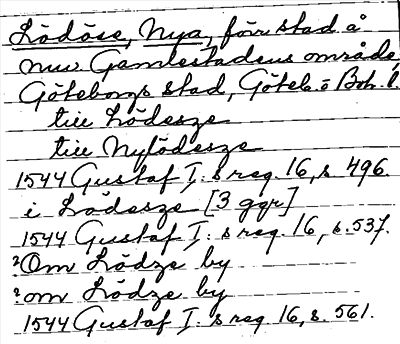 Lödöse, Nya, förr stad å
nuv. Gamlestadens område,
Göteborgs stad, Göteb. o Boh. l.
till Lödesze
till Nylödesze
1544 Gustaf I:s reg. 16, s 496.
i Lödesze [3 ggr]
1544 Gustaf I:s reg. 16, s. 537.
?Om Lödze by
?om Lödze by
1544 Gustaf I:s reg 16, s. 561.